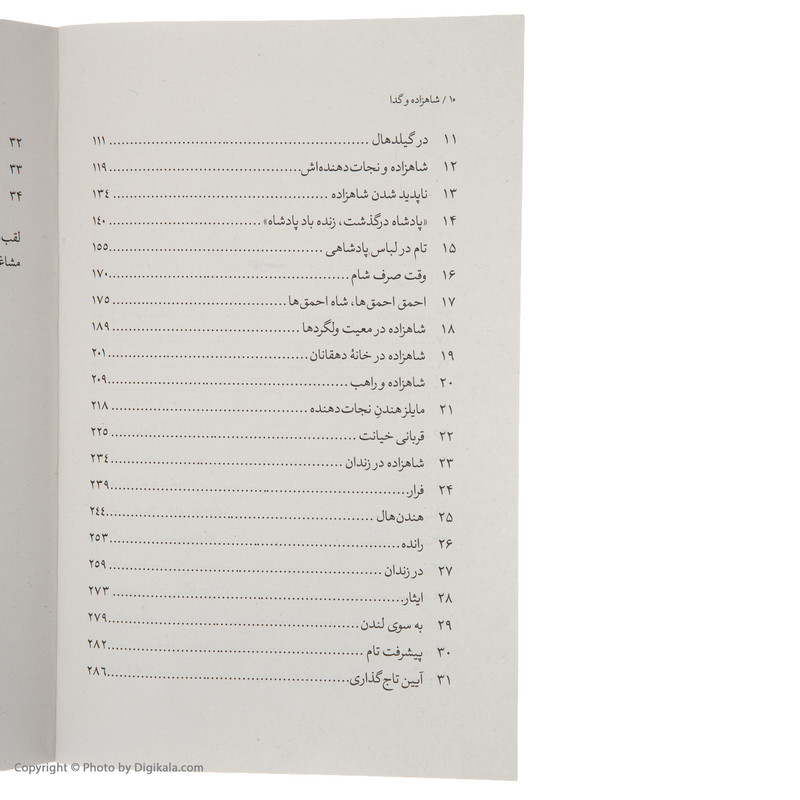 ۱۰ / شاهزاده و گدا
۱۱ در گیلدهال ........ ۱۱۱
۱۲ شاهزاده و نجات‌دهنده‌اش ........ ۱۱۹
۱۳ ناپدید شدن شاهزاده ........ ۱۳٤
۱۴ «پادشاه درگذشت، زنده باد پادشاه» ........ ۱٤۰
۱۵ تام در لباس پادشاهی ........ ۱۵۵
۱۶ وقت صرف شام ........ ۱۷۰
۱۷ احمق احمق‌ها، شاه احمق‌ها ........ ۱۷۵
۱۸ شاهزاده در معیت ولگردها ........ ۱۸۹
۱۹ شاهزاده در خانهٔ دهقانان ........ ۲۰۱
۲۰ شاهزاده و راهب ........ ۲۰۹
۲۱ مایلز هندنِ نجات‌دهنده ........ ۲۱۸
۲۲ قربانی خیانت ........ ۲۲۵
۲۳ شاهزاده در زندان ........ ۲۳٤
۲۴ فرار ........ ۲۳۹
۲۵ هندن‌هال ........ ۲٤٤
۲۶ رانده ........ ۲۵۳
۲۷ در زندان ........ ۲۵۹
۲۸ ایثار ........ ۲۷۳
۲۹ به سوی لندن ........ ۲۷۹
۳۰ پیشرفت تام ........ ۲۸۲
۳۱ آیین تاج‌گذاری ........ ۲۸٦
۳۲
۳۳
۳۴
لقب
Copyright © Photo by Digikala.com